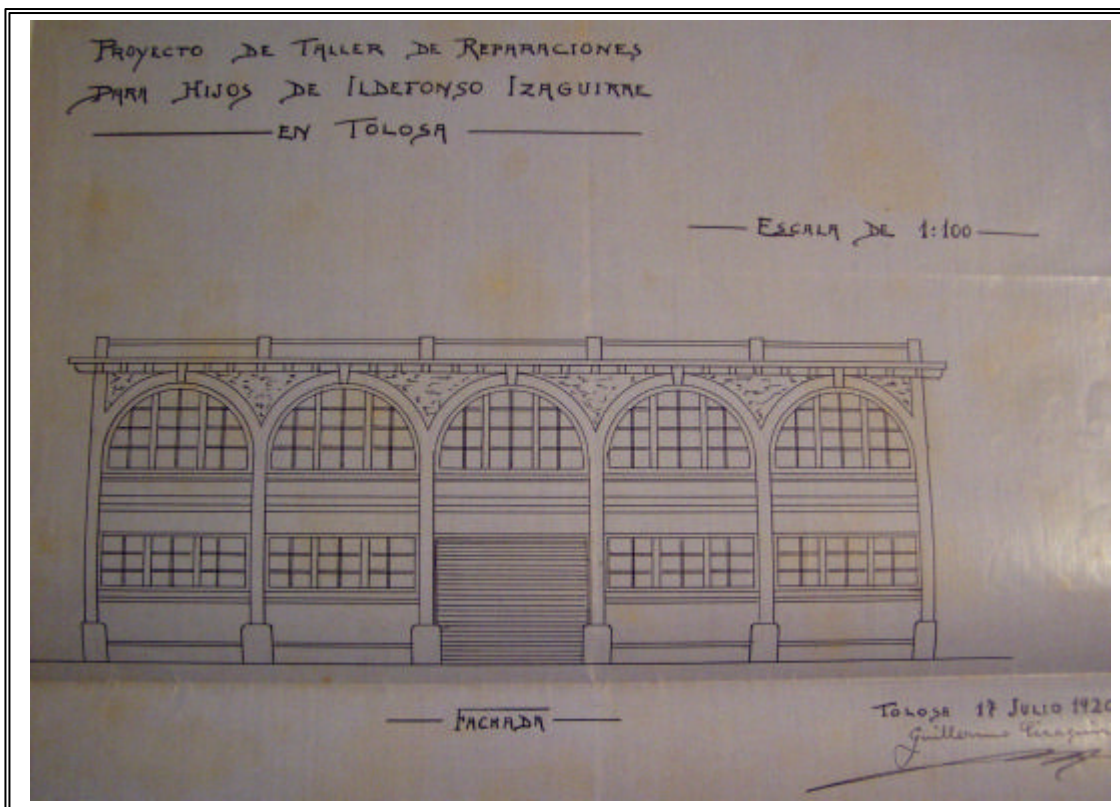 PROYECTO DE TALLER DE REPARACIONES
PARA HIJOS DE ILDEFONSO IZAGUIRRE
EN TOLOSA
ESCALA DE 1:100
FACHADA
TOLOSA 17 JULIO 1920
Guillermo